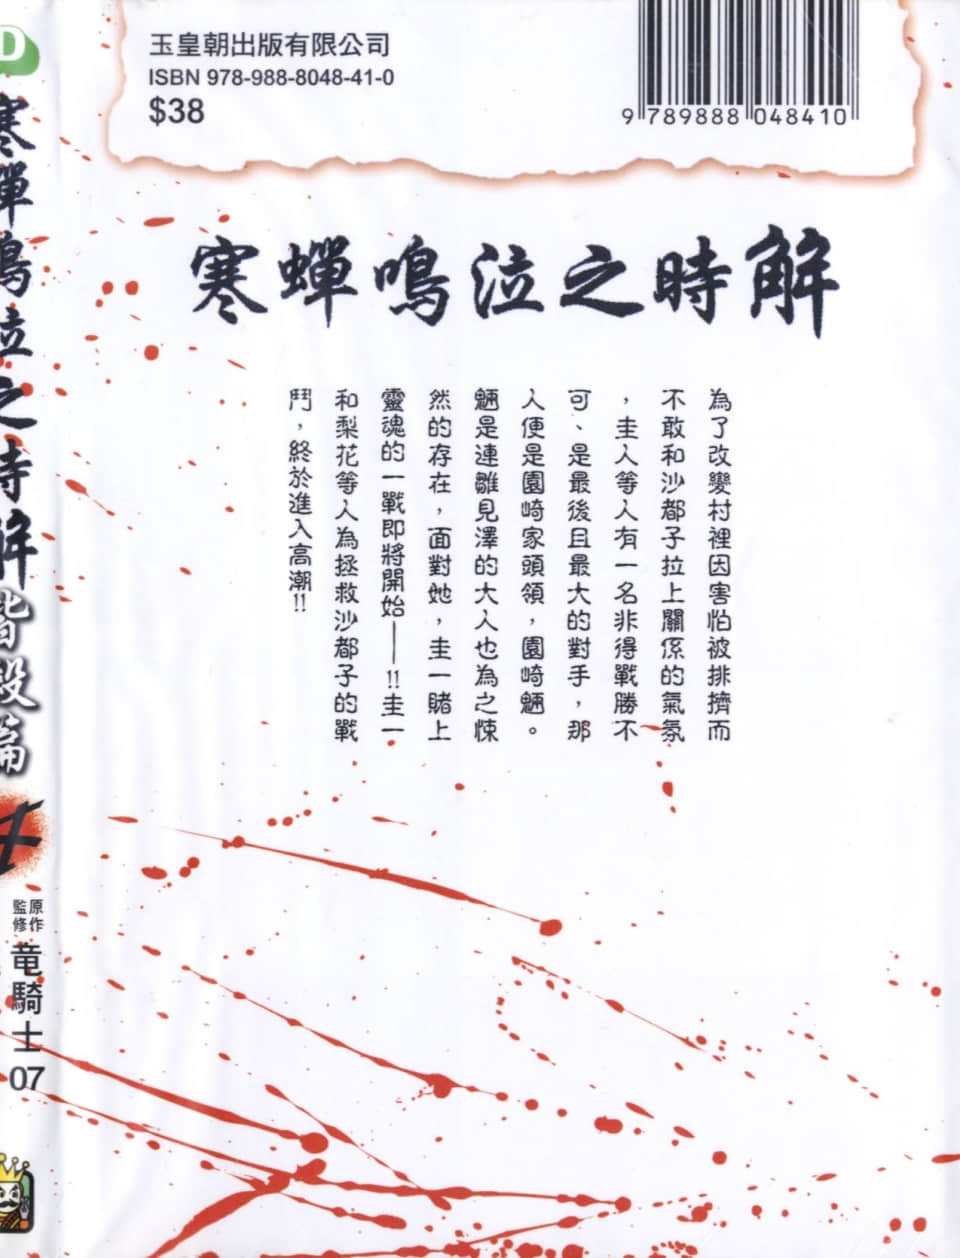 玉皇朝出版有限公司
ISBN 978-988-8048-41-0
$38
9 789888 048410
寒蟬鳴泣之時解
為了改變村裡因害怕被排擠而
不敢和沙都子拉上關係的氣氛
，圭人等人有一名非得戰勝不
可、是最後且最大的對手，那
人便是園崎家頭領，園崎魎。
魎是連雛見澤的大人也為之悚
然的存在，面對她，圭一賭上
靈魂的一戰即將開始——!!圭一
和梨花等人為拯救沙都子的戰
鬥，終於進入高潮!!
D
寒蟬鳴泣之時解
皆殺篇
4
原作
監修
竜騎士07